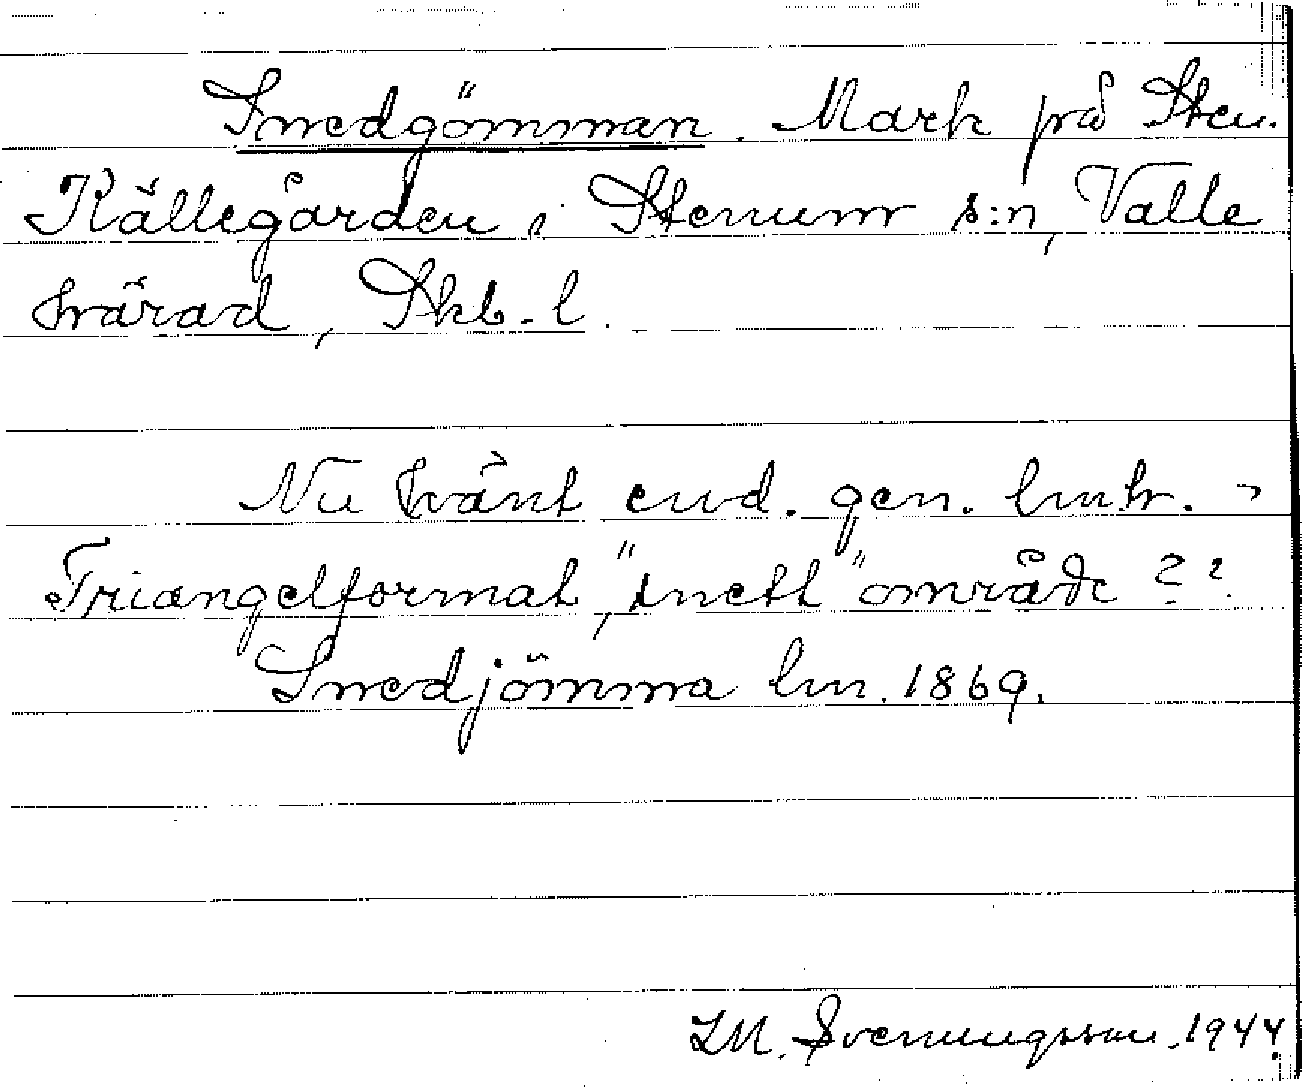 Smedgömman. Mark på Sten.
Källegården i Stenum s:n, Valle
härad, Skb. l.
Nu känt end. gen. lmh. -
Triangelformat, "snett" område ??
Smedjömma lm. 1869.
LM. Svenungsson. 1944.